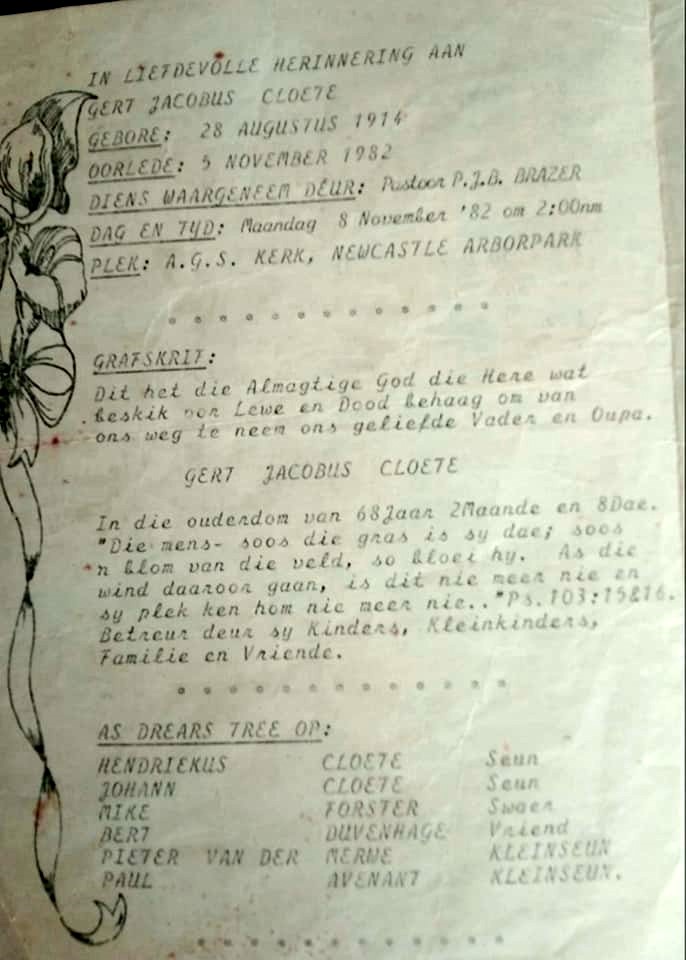 IN LIEFDEVOLLE HERINNERING AAN
GERT JACOBUS CLOETE
GEBORE: 28 AUGUSTUS 1914
OORLEDE: 5 NOVEMBER 1982
DIENS WAARGENEEM DEUR: Pastoor P.J.B. BRAZER
DAG EN TYD: Maandag 8 November '82 om 2:00nm
PLEK: A.G.S. KERK, NEWCASTLE ARBORPARK
GRAFSKRIT:
Dit het die Almagtige God die Here wat
beskik oor Lewe en Dood behaag om van
ons weg te neem ons geliefde Vader en Oupa.
GERT JACOBUS CLOETE
In die ouderdom van 68Jaar 2Maande en 8Dae.
"Die mens- soos die gras is sy dae; soos
'n blom van die veld, so bloei hy. As die
wind daaroor gaan, is dit nie meer nie en
sy plek ken hom nie meer nie.."Ps.103:15&16.
Betreur deur sy Kinders, Kleinkinders,
Familie en Vriende.
AS DREARS TREE OP:
HENDRIEKUS CLOETE Seun
JOHANN CLOETE Seun
MIKE FORSTER Swaer
BERT DUVENHAGE Vriend
PIETER VAN DER MERWE KLEINSEUN
PAUL AVENANT KLEINSEUN.